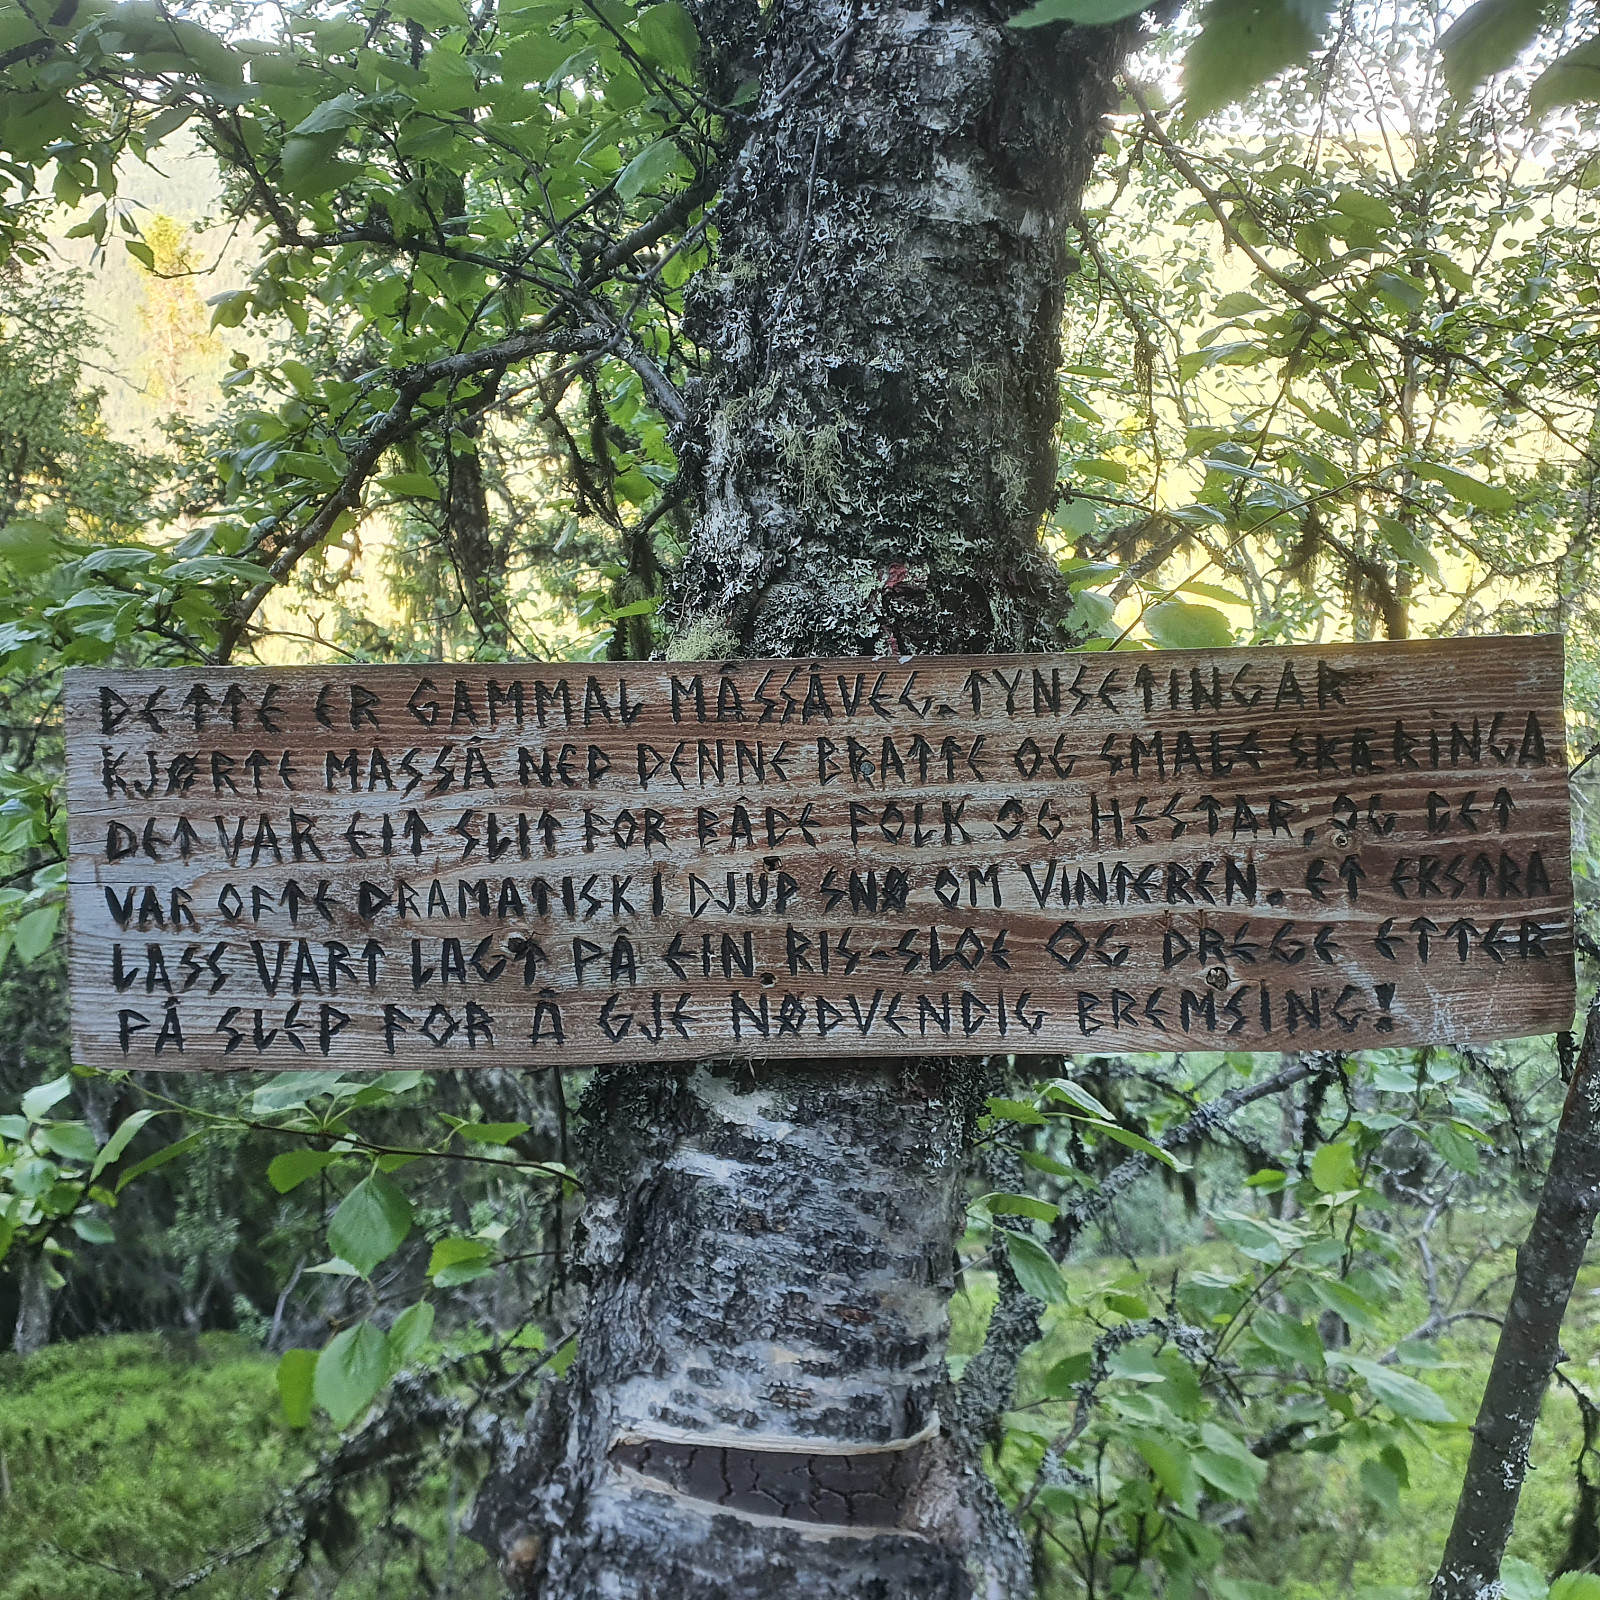 DETTE ER GAMMAL MÅSSÅVEG. TYNSETINGAR
KJØRTE MÅSSÅ NED DENNE BRATTE OG SMALE SKÆRINGA.
DET VAR EIT SLIT FOR BÅDE FOLK OG HESTAR, OG DET
VAR OFTE DRAMATISK I DJUP SNØ OM VINTEREN. ET EKSTRA
LASS VART LAGT PÅ EIN RIS-SLOE OG DREGE ETTER
PÅ SLEP FOR Å GJE NØDVENDIG BREMSING!